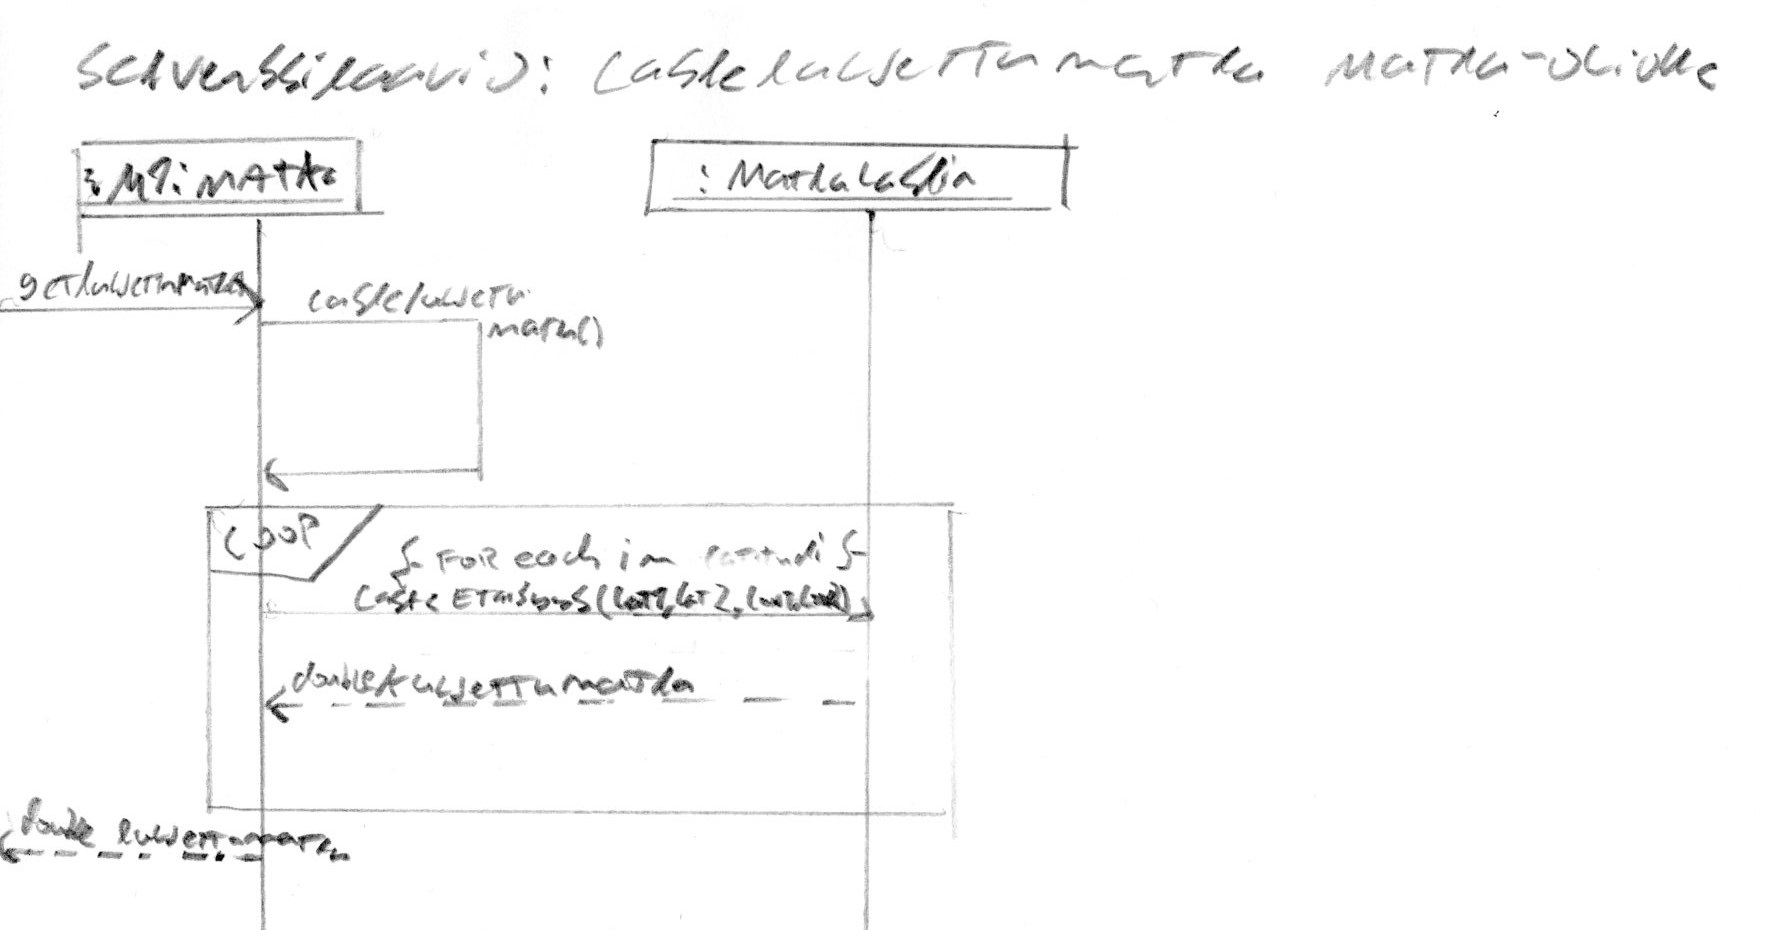 Sekvenssikaavio: Laske kuljettu matka Matka-oliolle
: Matka
: MatkaLaskin
getKuljettuMatka
laskeKuljettu
matka()
LOOP
{ FOR each in latitudi }
Laske Etäisyys(lat1, lat2,
double kuljettu matka
double kuljettumatka